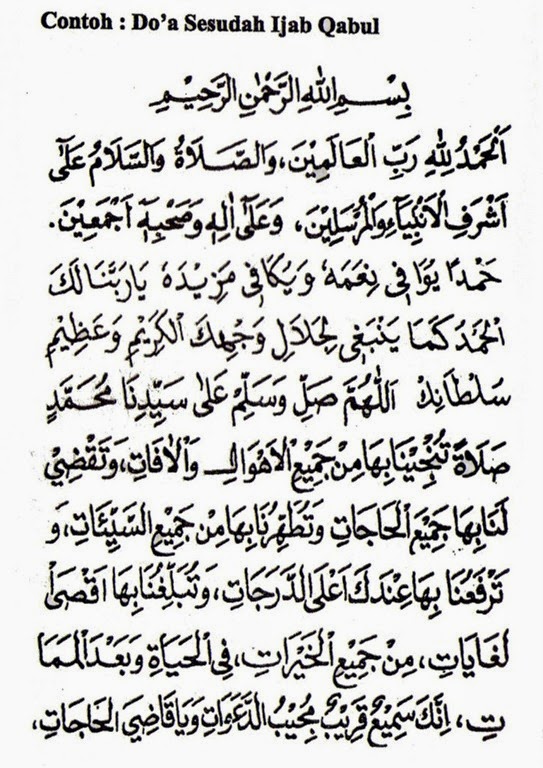 Contoh : Do'a Sesudah Ijab Qabul
بِسْمِ اللهِ الرَّحْمٰنِ الرَّحِيْمِ
اَلْحَمْدُ لِلّٰهِ رَبِّ الْعَالَمِيْنَ، وَالصَّلَاةُ وَالسَّلَامُ عَلَى
أَشْرَفِ الْاَنْبِيَآءِ وَالْمُرْسَلِيْنَ، وَعَلَى اٰلِهٖ وَصَحْبِهٖٓ اَجْمَعِيْنَ.
حَمْدًا يُوَافِى نِعَمَهُ وَيُكَافِى مَزِيْدَهُ يَارَبَّنَا لَكَ
الْحَمْدُ كَمَا يَنْبَغِى لِجَلَالِ وَجْهِكَ الْكَرِيْمِ وَعَظِيْمِ
سُلْطَانِكَ اَللّٰهُمَّ صَلِّ وَسَلِّمْ عَلَى سَيِّدِنَا مُحَمَّدٍ
صَلَاةً تُنْجِيْنَا بِهَا مِنْ جَمِيْعِ الْاَهْوَالِ وَالْاٰفَاتِ، وَتَقْضِيْ
لَنَا بِهَا جَمِيْعَ الْحَاجَاتِ وَتُطَهِّرُنَا بِهَا مِنْ جَمِيْعِ السَّيِّئَاتِ، وَ
تَرْفَعُنَا بِهَا عِنْدَكَ اَعْلَى الدَّرَجَاتِ، وَتُبَلِّغُنَا بِهَا اَقْصَى اْ
لغَايَاتِ، مِنْ جَمِيْعِ الْخَيْرَاتِ، فِى الْحَيَاةِ وَبَعْدَ الْمَمَا
تِ، اِنَّكَ سَمِيْعٌ قَرِيْبٌ مُجِيْبُ الدَّعَوَاتِ وَيَا قَاضِيَ الْحَاجَاتِ،